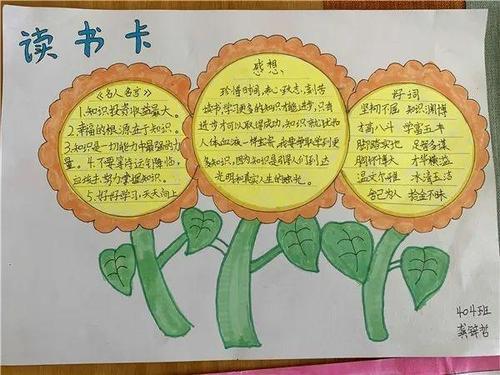 读书卡
《名人名言》
1.知识投资收益最大。
2.幸福的根源在于知识。
3.知识是一切能力中最强的力
量。4.不要等待运气降临,
应该去努力掌握知识。
5.好好学习,天天向上
感想
珍惜时间,
读书,学习更多的知识才能进步,只有
进步才可以取得成功,知识就犹如
人体血液一样宝贵,我要学取学到更
多知识,因为知识是引导人们到达
光明和真实人生的烛光。
好词
坚韧不屈 知识渊博
才高八斗 学富五车
脚踏实地 足智多谋
胸怀博大 才华横溢
温文尔雅 冰清玉洁
舍己为人 拾金不昧
404班